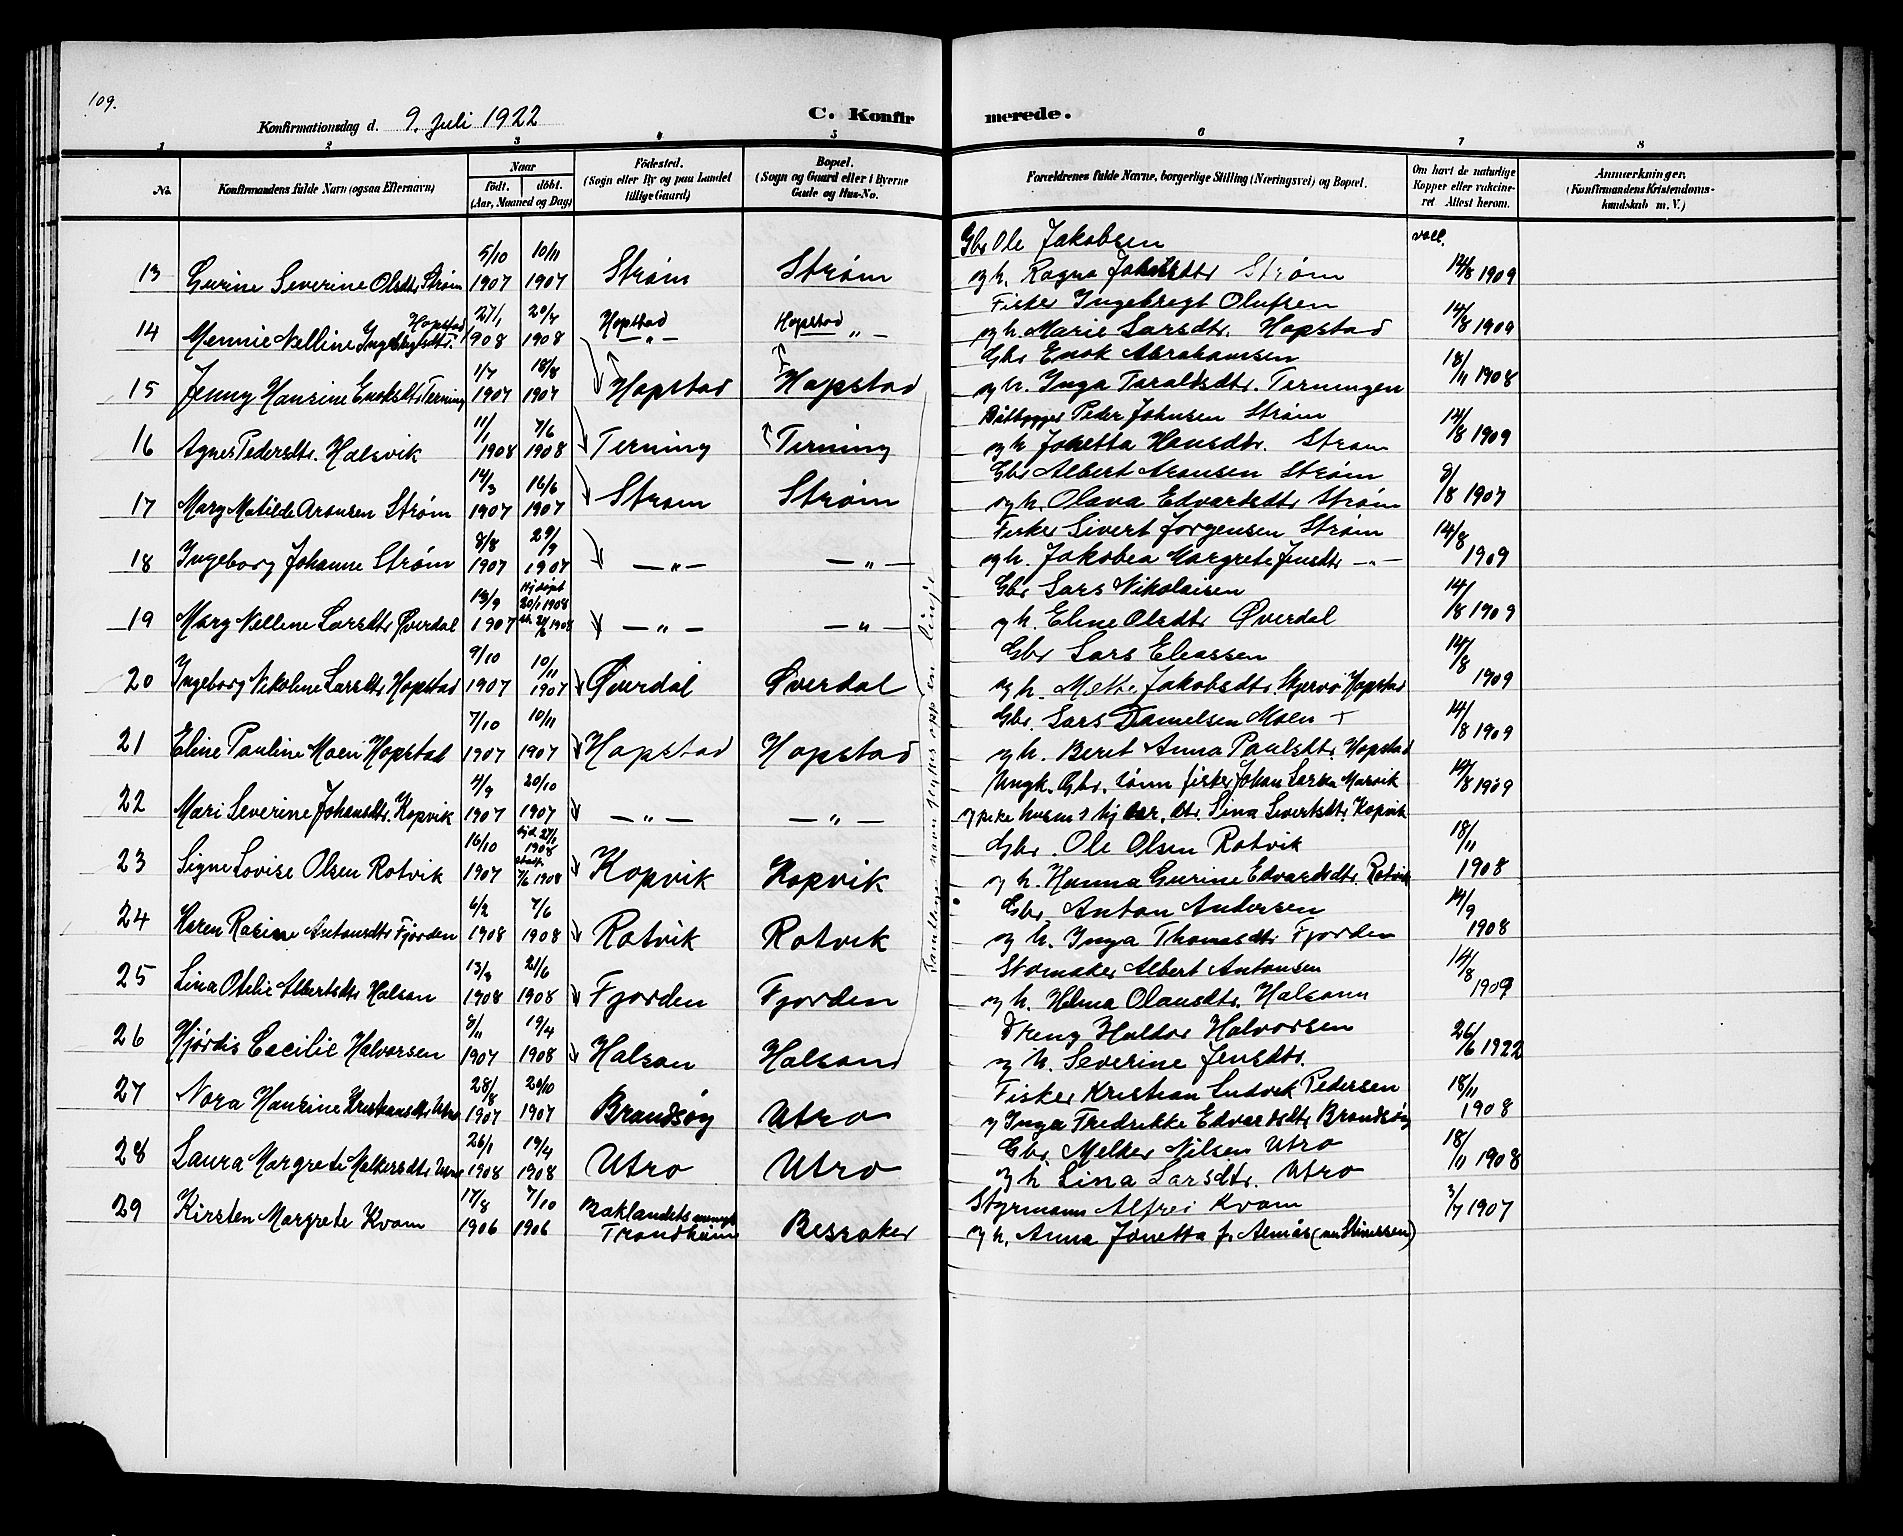 109.
Konfirmationsdag d. 9. Juli 1922
C. Konfirmerede.
1 2 3 4 5 6 7 8
No. Konfirmandens fulde Navn (ogsaa Efternavn)
Naar
født. døbt.
(Aar, Maaned og Dag)
Fødested.
(Sogn eller By og paa Landet
tillige Gaard)
Bopæl.
(Sogn og Gaard eller i Byerne
Gade og Hus-No.
Forældrenes fulde Navne, borgerlige Stilling (Næringsvei) og Bopæl.
Om havt de naturlige
Kopper eller vakcine-
ret Attest herom.
Anmærkninger.
(Konfirmandens Kristendoms-
kundskab m. V.)
vacc.
13 Gurine Severine Olsdtr Strøm 5/10 1907 10/11 1907 Strøm Strøm Gbr Ole Jakobsen
og h. Ragna Strøm 14/8 1909
14 Mennie Nelline Ingebrgtsdtr. Hopstad 27/1 1908 20/4 1908 Hopstad —„— Hopstad „— Fisker Ingebregt Olufsen
og h. Marie Larsdtr. Hopstad 14/8 1909
15 Jenny Hansine Enoksdtr Terning 1/7 1907 18/8 1907 Hopstad Hopstad Gbr Enok Abrahamsen
og h. Inga Taraldsdtr. Terningen 18/11 1908
16 Agnes Pedersdtr. Halsvik 11/1 1908 7/6 1908 Terning Terning Båtbygger Peder Johnsen Strøm
og h. Jonetta Hansdtr. Strøm 14/8 1909
17 Mary Matilde Aronsen Strøm 14/3 1907 16/6 1907 Strøm Strøm Gbr Albert Aronsen Strøm
og h. Olava Edvardsdtr Strøm 9/8 1907
18 Ingeborg Johanne Strøm 8/8 1907 29/9 1907 —„— —„— Fisker Sivert Jørgensen Strøm
og h. Jakobea Margrete Jensdtr —„— 14/8 1909
19 Mary Nelline Larsdtr Øverdal 13/9 1907 20/1 1908 1908 —„— —„— Gbr Lars Nikolaisen
og h. Eline Olsdtr Øverdal 14/8 1909
20 Ingeborg Nikoline Larsdtr Hopstad 9/10 1907 10/11 1907 Øverdal Øverdal Gbr Lars Eliassen
og h. Jakobsdtr. Hopstad 14/8 1909
21 Eline Pauline Moen Hopstad 7/10 1907 10/11 1907 Hopstad Hopstad Gbr. Lars Danielsen Moen +
og h. Beret Anna Paulsdtr. Hopstad 14/8 1909
22 Mari Severine Johansdtr. Kopvik 4/9 1907 20/10 1907 —„— —„— Ungk. Gbr. sønn fisker Johan Larsen Marvik
og Lina Sivertsdtr. Kopvik 14/8 1909
23 Signe Lovise Olsen Rotvik 16/10 1907 27/1 1908 7/6 1908 Kopvik Kopvik Gbr. Ole Olsen Rotvik
og h. Hanna Gurine Edvardsdtr. Rotvik 18/11 1908
24 Karen Rasine Antonsdtr Fjorden 6/2 1908 7/6 1908 Rotvik Rotvik Gbr. Anton Andersen
og h. Inga Thomasdtr Fjorden 14/9 1908
25 Lina Otelie Albertsdtr Halsan 13/3 1908 21/6 1908 Fjorden Fjorden Skomaker Albert Antonsen
og h. Helma Olausdtr. Halsann 14/8 1909
26 Hjørdis Cecilie Halvorsen 8/11 1907 19/4 1908 Halsan Halsan Dreng Haldor Halvorsen
og h. Severine Jensdtr. 26/6 1922
27 Nora Hansine Kristiansdtr Utro 28/8 1907 20/10 1907 Brandsøy Utro Fisker Kristian Ludvik Pedersen
og Inga Fredrikke Edvardsdtr Brandsøy 18/11 1908
28 Laura Margrete Melkersdtr Utro 26/1 1908 19/4 1908 Utro Utro Gbr Melker Nilsen Utro
og h Lina Larsdtr. Utro 18/11 1908
29 Kirsten Margrete Kvam 17/8 1906 7/10 1906 Baklandets Trondheim Bessaker Styrmann Alfrei Kvam
og h. Anna Jonetta f. 3/7 1907